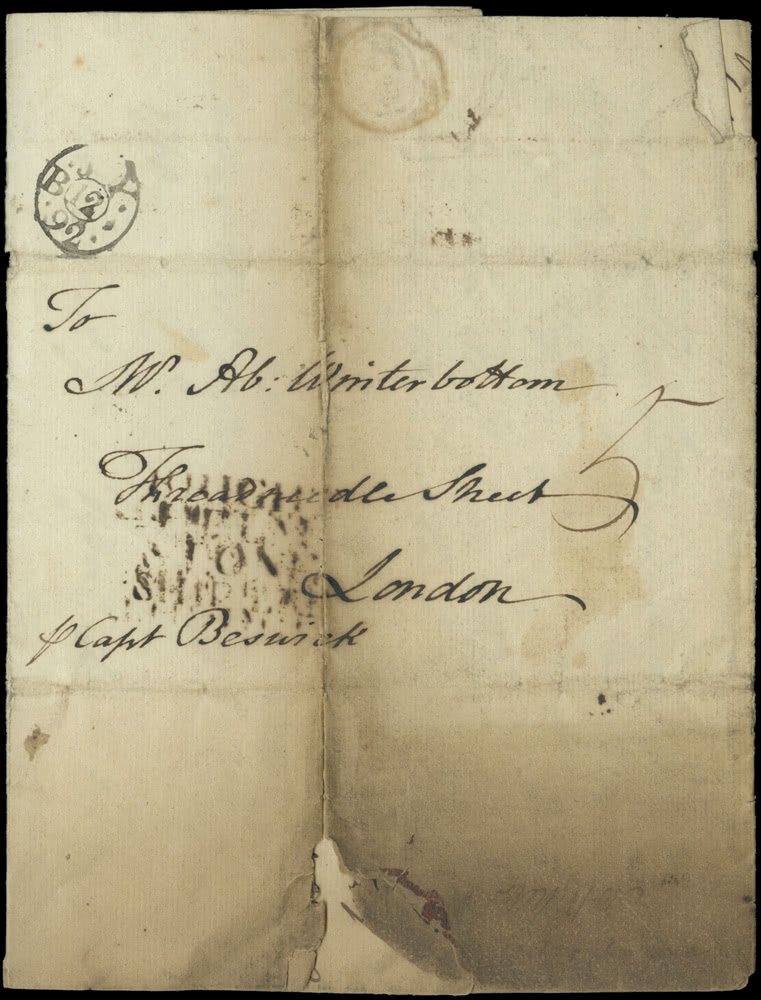 12
92
To
Mr. Ab: Winterbottom
5
Threadneedle Street
London
⅌ Capt Beswick